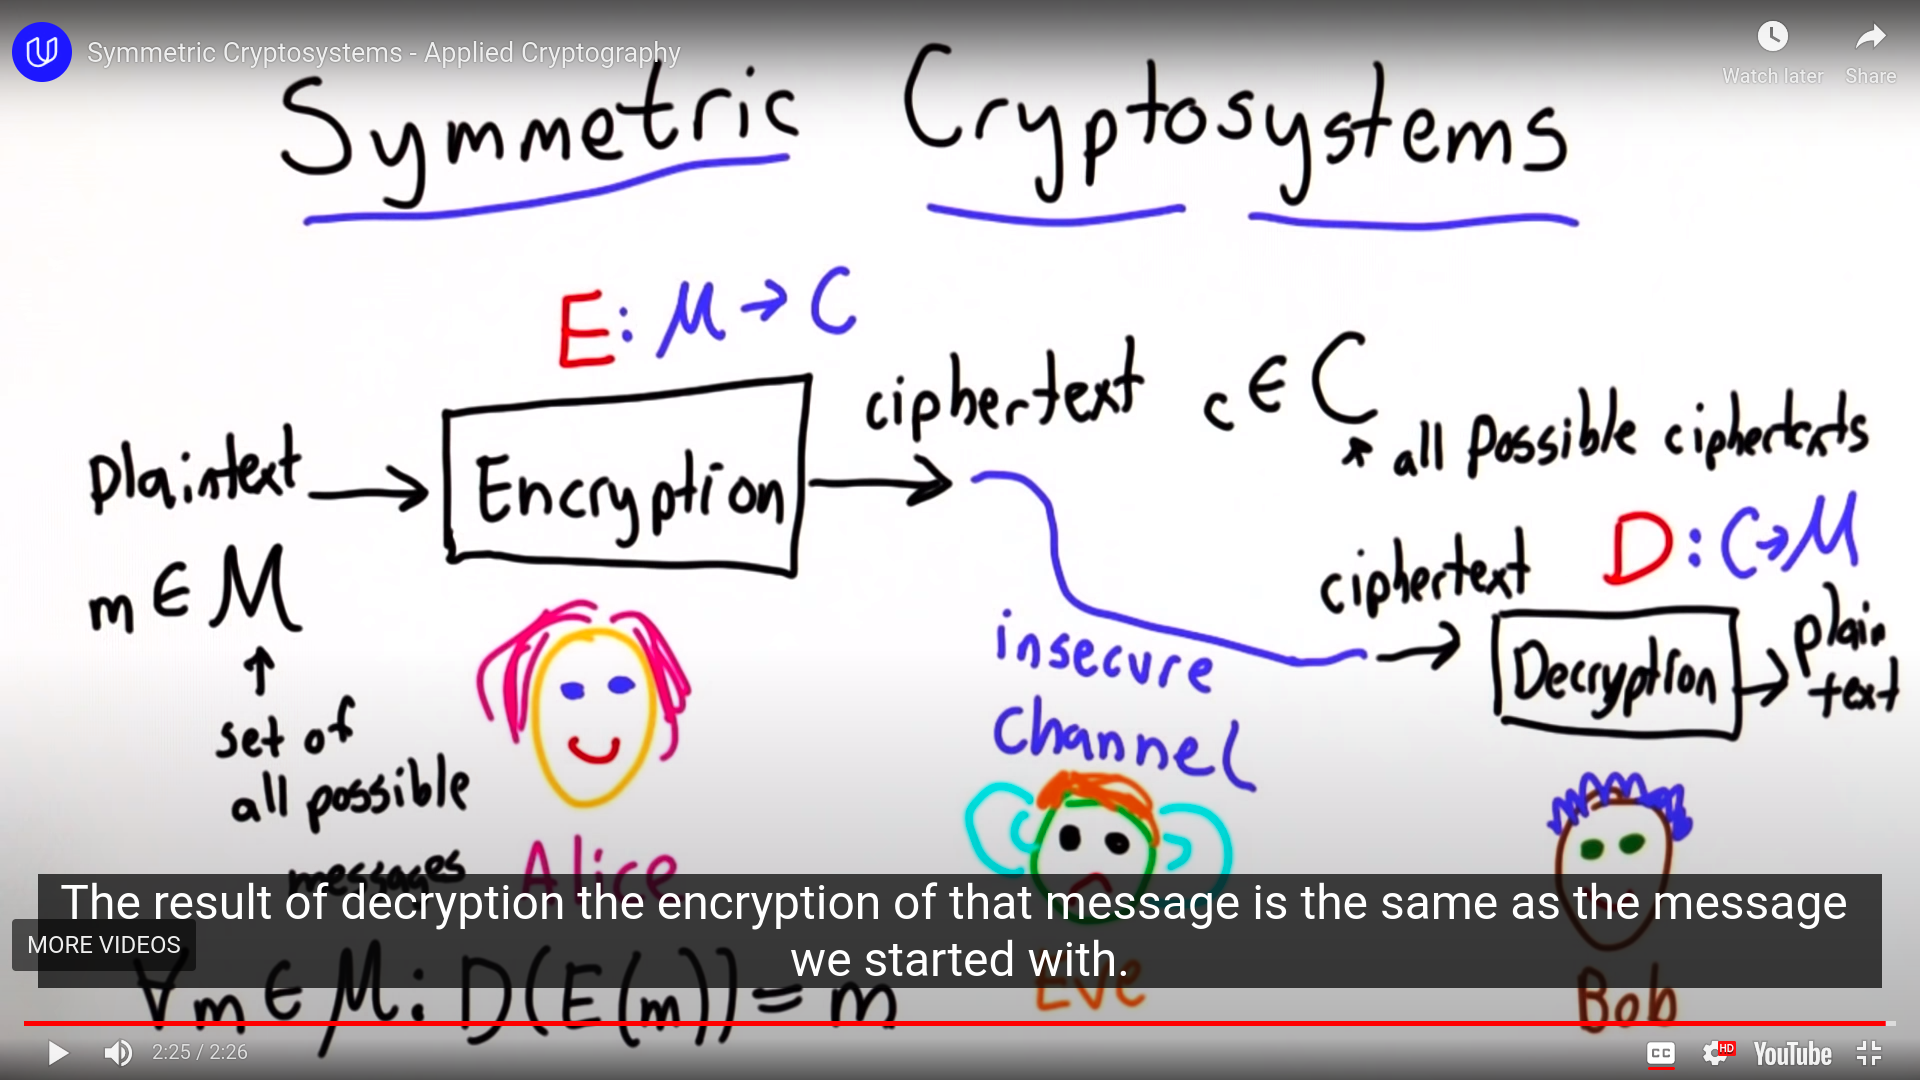 Symmetric Cryptosystems - Applied Cryptography
Watch later
Share
Symmetric Cryptosystems
E: M → C
ciphertext c ∈ C
all possible ciphertexts
Plaintext
Encryption
m ∈ M
set of
all possible
messages
Alice
insecure
channel
Eve
ciphertext
D: C → M
Decryption
plain
text
Bob
The result of decryption the encryption of that message is the same as the message
we started with.
MORE VIDEOS
∀m ∈ M: D(E(m)) = m
2:25 / 2:26
CC
HD
YouTube